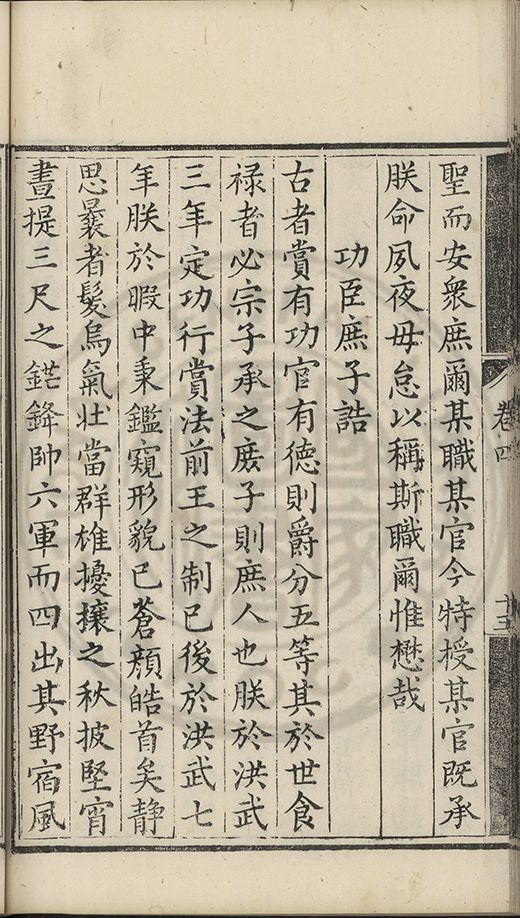 聖而安衆庶爾某職某官今特授某官既承
朕命夙夜毋怠以稱斯職爾惟懋哉
功臣庶子誥
古者賞有功官有德則爵分五等其於世食
禄者必宗子承之庶子則庶人也朕於洪武
三年定功行賞法前王之制已後於洪武七
年朕於暇中秉鑑窺形貌已蒼顔皓首矣静
思曩者髮烏氣壯當群雄擾攘之秋披堅宵
晝提三尺之鋩鋒帥六軍而四出其野宿風
卷四
十五